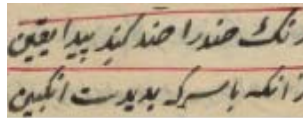 زانک ضدرا ضد کند پیدا یقین
زانکه با سرکه پدیدست انگبین